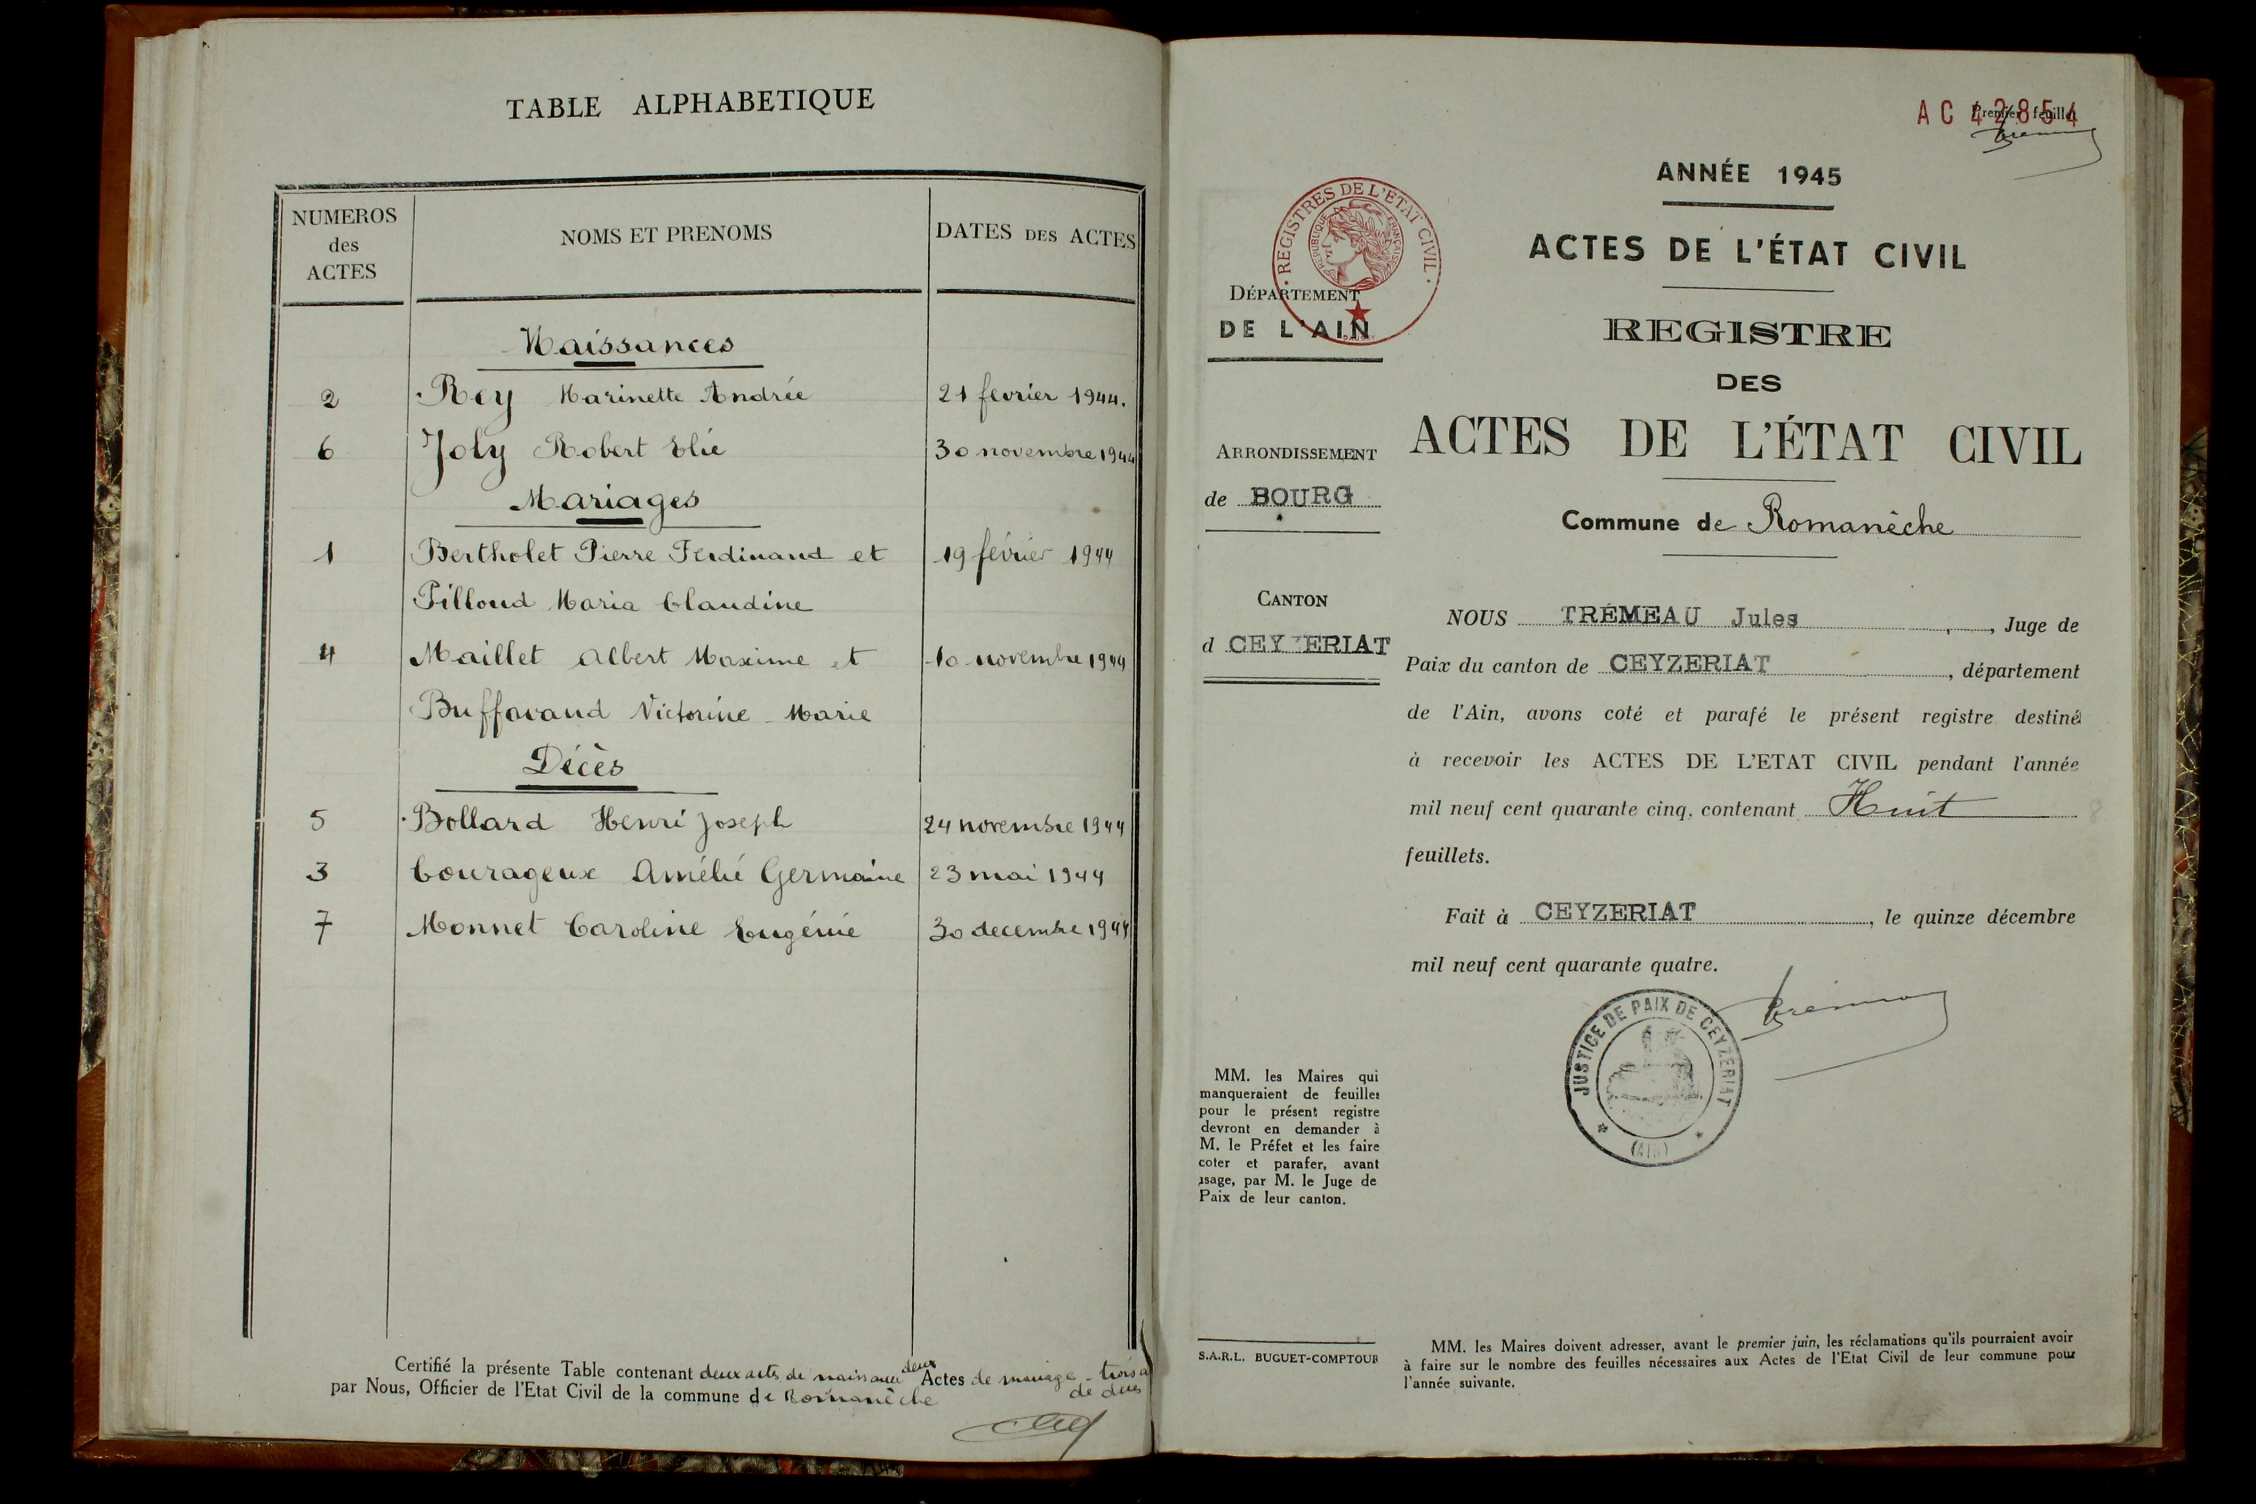 TABLE ALPHABETIQUE
NUMEROS des ACTES
NOMS ET PRENOMS
DATES DES ACTES
Naissances
2 Rey Marinette Andrée 21 fevrier 1944.
6 Joly Robert Elie 30 novembre 1944
Mariages
1 Bertholet Pierre Ferdinand et 19 février 1944
Pilloud Maria Claudine
4 Maillet Albert Maxime et 10 novembre 1944
Buffavand Victorine - Marie
Décès
5 Bollard Henri Joseph 24 novembre 1944
3 Courageux Amélie Germaine 23 mai 1944
7 Monnet Caroline Eugénie 30 decembre 1944
Certifié la présente Table contenant deux actes de naissance deux Actes de mariage - trois
par Nous, Officier de l'Etat Civil de la commune de Romanèche de décès
AC 42854
Premier feuillet
ANNÉE 1945
ACTES DE L'ÉTAT CIVIL
REGISTRE
DES
ACTES DE L'ÉTAT CIVIL
Commune de Romanèche
REGISTRES DE L'ETAT CIVIL
REPUBLIQUE FRANÇAISE
DÉPARTEMENT
DE L'AIN
ARRONDISSEMENT
de BOURG
CANTON
d CEYZERIAT
NOUS TRÉMEAU Jules, Juge de
Paix du canton de CEYZERIAT, département
de l'Ain, avons coté et parafé le présent registre destiné
à recevoir les ACTES DE L'ETAT CIVIL pendant l'année
mil neuf cent quarante cinq, contenant Huit
feuillets.
Fait à CEYZERIAT, le quinze décembre
mil neuf cent quarante quatre.
JUSTICE DE PAIX DE CEYZERIAT
(AIN)
MM. les Maires qui
manqueraient de feuilles
pour le présent registre
devront en demander à
M. le Préfet et les faire
coter et parafer, avant
usage, par M. le Juge de
Paix de leur canton.
S.A.R.L. BUGUET-COMPTOUR
MM. les Maires doivent adresser, avant le premier juin, les réclamations qu'ils pourraient avoir
à faire sur le nombre des feuilles nécessaires aux Actes de l'Etat Civil de leur commune pour
l'année suivante.